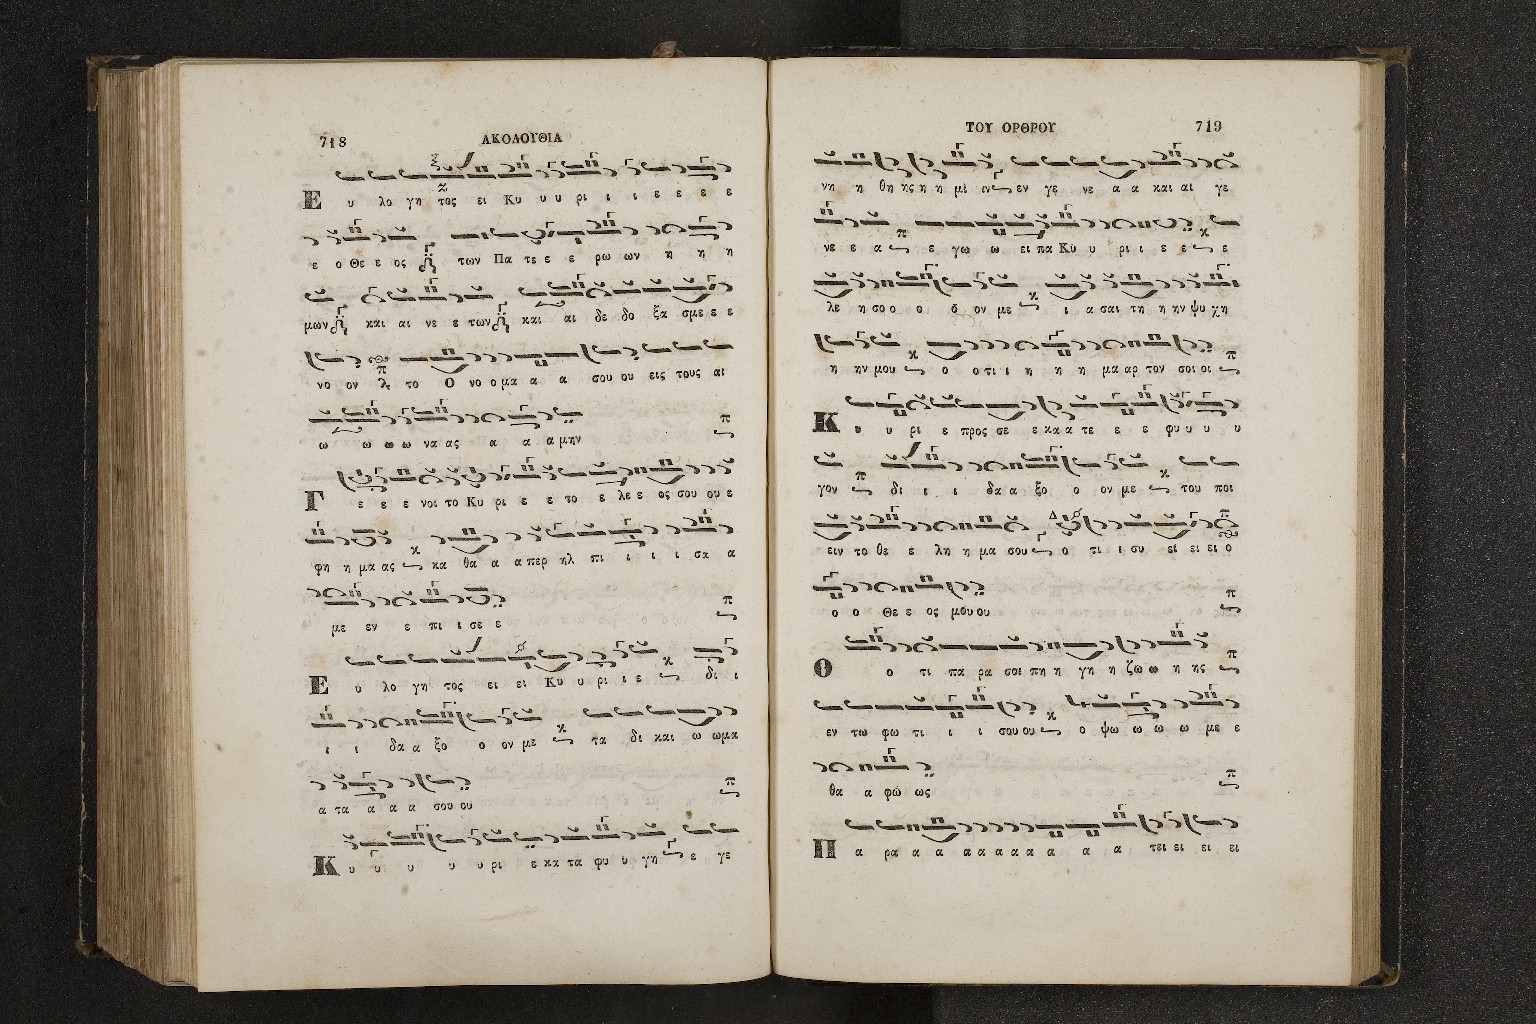 718
ΑΚΟΛΟΥΘΙΑ
Ε υ λο γη τος ει Κυ υ υ ρι ι ι ε ε ε ε
ε ο Θε ε ος των Πα τε ε ε ρω ων η η η
μων και αι νε ε των και αι δε δο ξα σμε ε ε
νο ον το Ο νο ο μα α α σου ου εις τους αι
ω ω ω ω να ας α α α μην
Γ ε ε ε νοι το Κυ ρι ε ε το ε λε ε ος σου ου ε
φη η μα ας κα θα α α περ ηλ πι ι ι ι σα α
με εν ε πι ι σε ε
Ε υ λο γη τος ει ει Κυ υ ρι ι ε δι ι
ι ι δα α ξο ο ον με τα δι και ω ω μα
α τα α α α σου ου
Κ υ υ υ υ υ ρι ε κα τα φυ υ γη ε γε
ΤΟΥ ΟΡΘΡΟΥ
719
νη η θη ης η η μι ιν εν γε νε α α και αι γε
νε ε α ε γω ω ει πα Κυ υ ρι ι ε ε ε
λε η σο ο ο ο ον με ι α σαι τη η ην ψυ χη
η ην μου ο ο τι ι η η η μα αρ τον σοι οι
Κ υ υ ρι ε προς σε ε κα α τε ε ε φυ υ υ υ
γον δι ι ι δα α ξο ο ον με του ποι
ειν το θε ε λη η μα σου ο τι ι συ ει ει ει ο
ο ο Θε ε ος μου ου
Ο ο τι πα ρα σοι πη η γη η ζω ω η ης
εν τω φω τι ι ι σου ου ο ψω ω ω ω με ε
θα α φω ως
Π α ρα α α α α α α α α α α τει ει ει ει